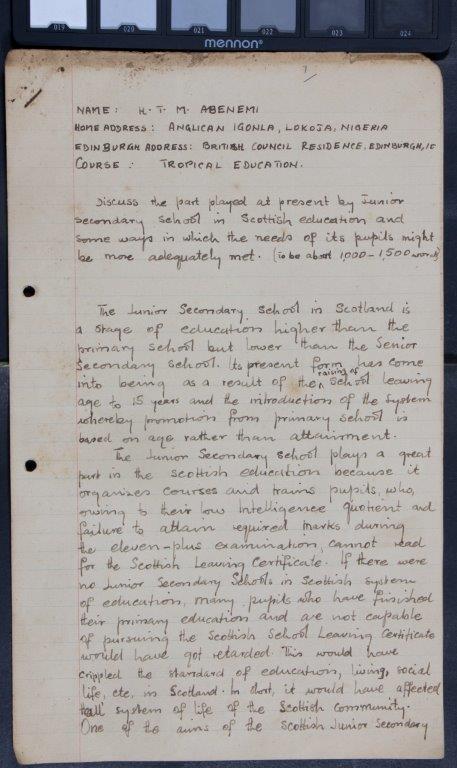 019 020 021 022 023 024
mennon®
NAME: H. T. M. ABENEMI
HOME ADDRESS: ANGLICAN IGONLA, LOKOJA, NIGERIA
EDINBURGH ADDRESS: BRITISH COUNCIL RESIDENCE, EDINBURGH,
COURSE: TROPICAL EDUCATION.
Discuss the part played at present by Junior
Secondary School in Scottish education and
some ways in which the needs of its pupils might
be more adequately met. (To be about 1,000-1,500 words)
The Junior Secondary School in Scotland is
a stage of education higher than the
primary school but lower than the Senior
Secondary School. Its present form has come
into being as a result of the raising of School leaving
age to 15 years and the introduction of the system
whereby promotion from primary school is
based on age rather than attainment.
The Junior Secondary School plays a great
part in the Scottish education because it
organises courses and trains pupils, who,
owing to their low Intelligence Quotient and
failure to attain required marks during
the eleven-plus examination, cannot read
for the Scottish Leaving Certificate. If there were
no Junior Secondary Schools in Scottish system
of education, many pupils who have finished
their primary education and are not capable
of pursuing the Scottish School Leaving Certificate
would have got retarded. This would have
crippled the standard of education, living, social
life, etc. in Scotland. In short, it would have affected
all system of life of the Scottish community.
One of the aims of the Scottish Junior Secondary